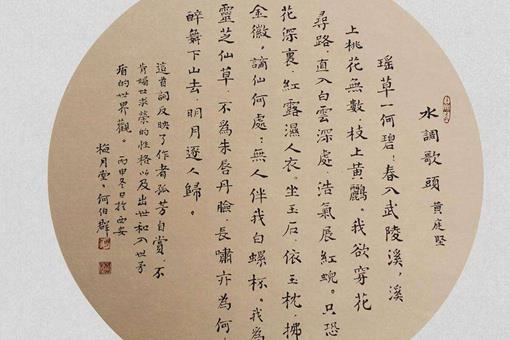 水調歌頭 黃庭堅
瑶草一何碧！春入武陵溪，溪
上桃花無數，枝上黃鸝。我欲穿花
尋路，直入白雲深處，浩氣展紅蜺。只恐
花深裏，紅露濕人衣。坐玉石，依玉枕，拂
金徽，謫仙何處？無人伴我白螺杯。我為
靈芝仙草，不為朱唇丹臉，長嘯亦為何
醉舞下山去，明月逐人歸。
這首詞反映了作者孤芳自賞，不
肯媚世求榮的性格以及出世和入世矛
盾的世界觀。丙申冬日於西安
梅月堂，何伯群